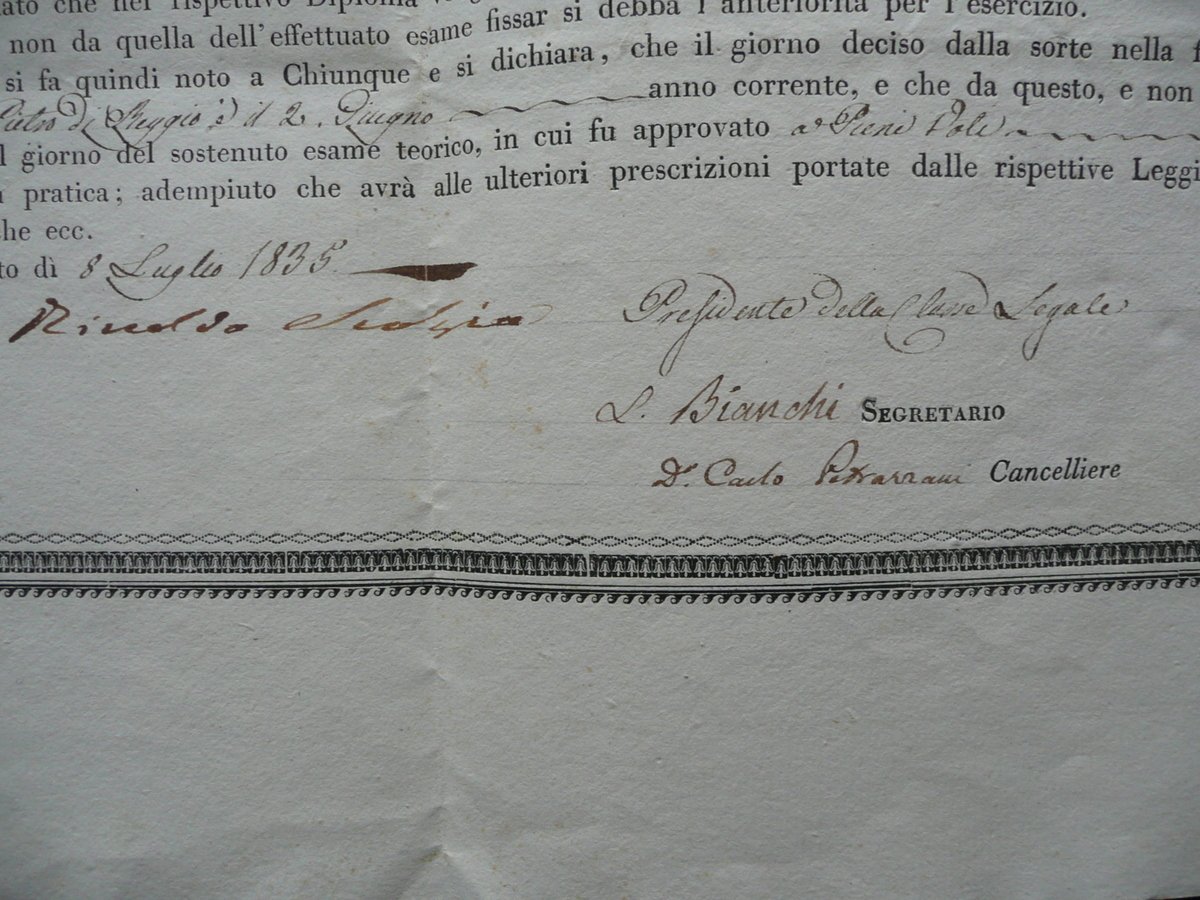 ato che nel rispettivo Diploma
non da quella dell'effettuato esame fissar si debba l'anteriorità per l'esercizio.
si fa quindi noto a Chiunque e si dichiara, che il giorno deciso dalla sorte nella f
Pietro di Reggio è il 2. Giugno anno corrente, e che da questo, e non
l giorno del sostenuto esame teorico, in cui fu approvato a Pieni Voti
a pratica; adempiuto che avrà alle ulteriori prescrizioni portate dalle rispettive Leggi
che ecc.
to dì 8 Luglio 1835
Rinaldo Presidente della Classe Legale
L. Bianchi SEGRETARIO
Dr. Carlo Petrazzani Cancelliere